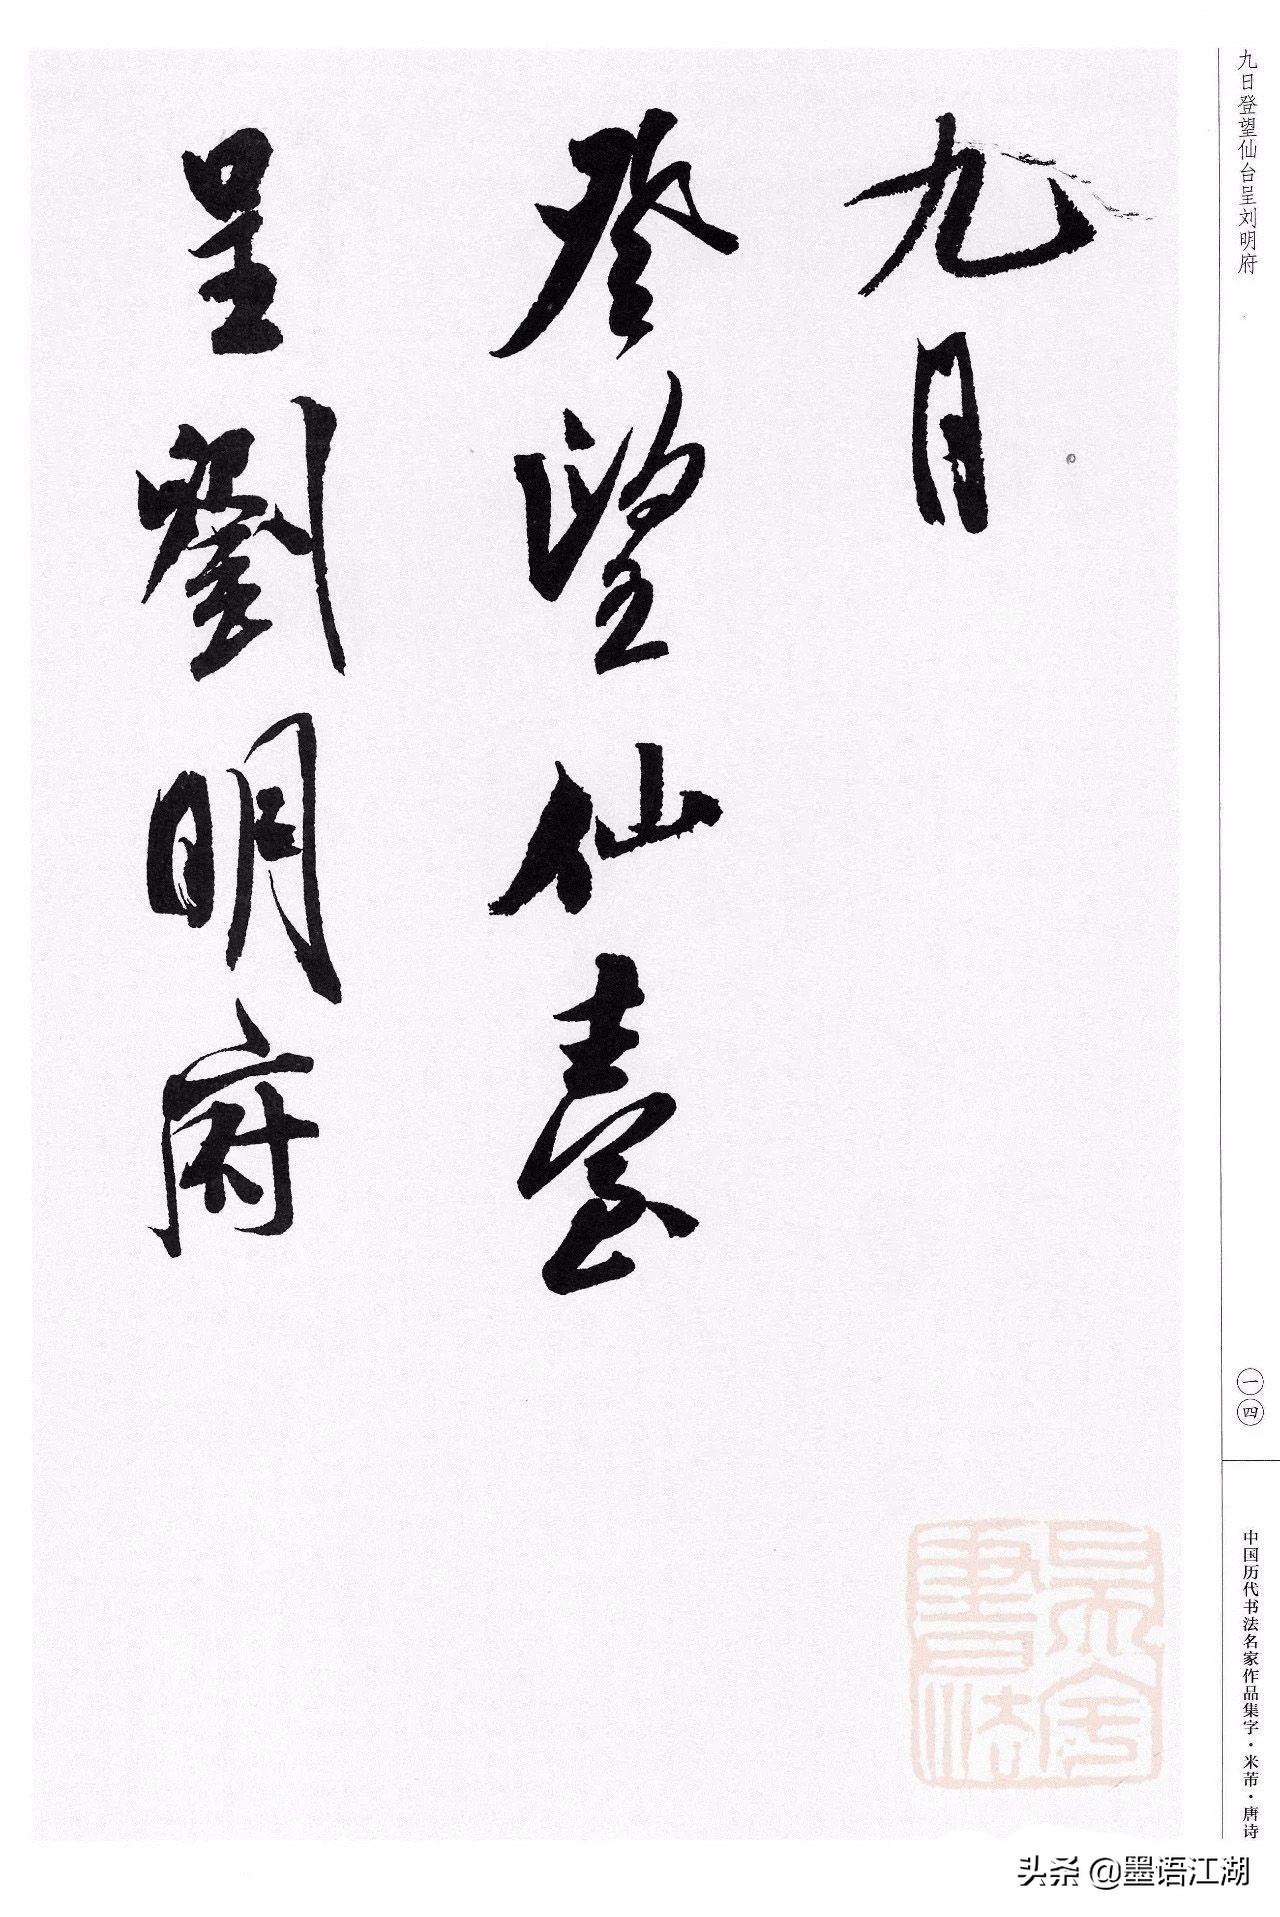 九日
登望仙臺
呈劉明府
九日登望仙台呈刘明府
一四
中国历代书法名家作品集字·米芾·唐诗
头条 @墨语江湖